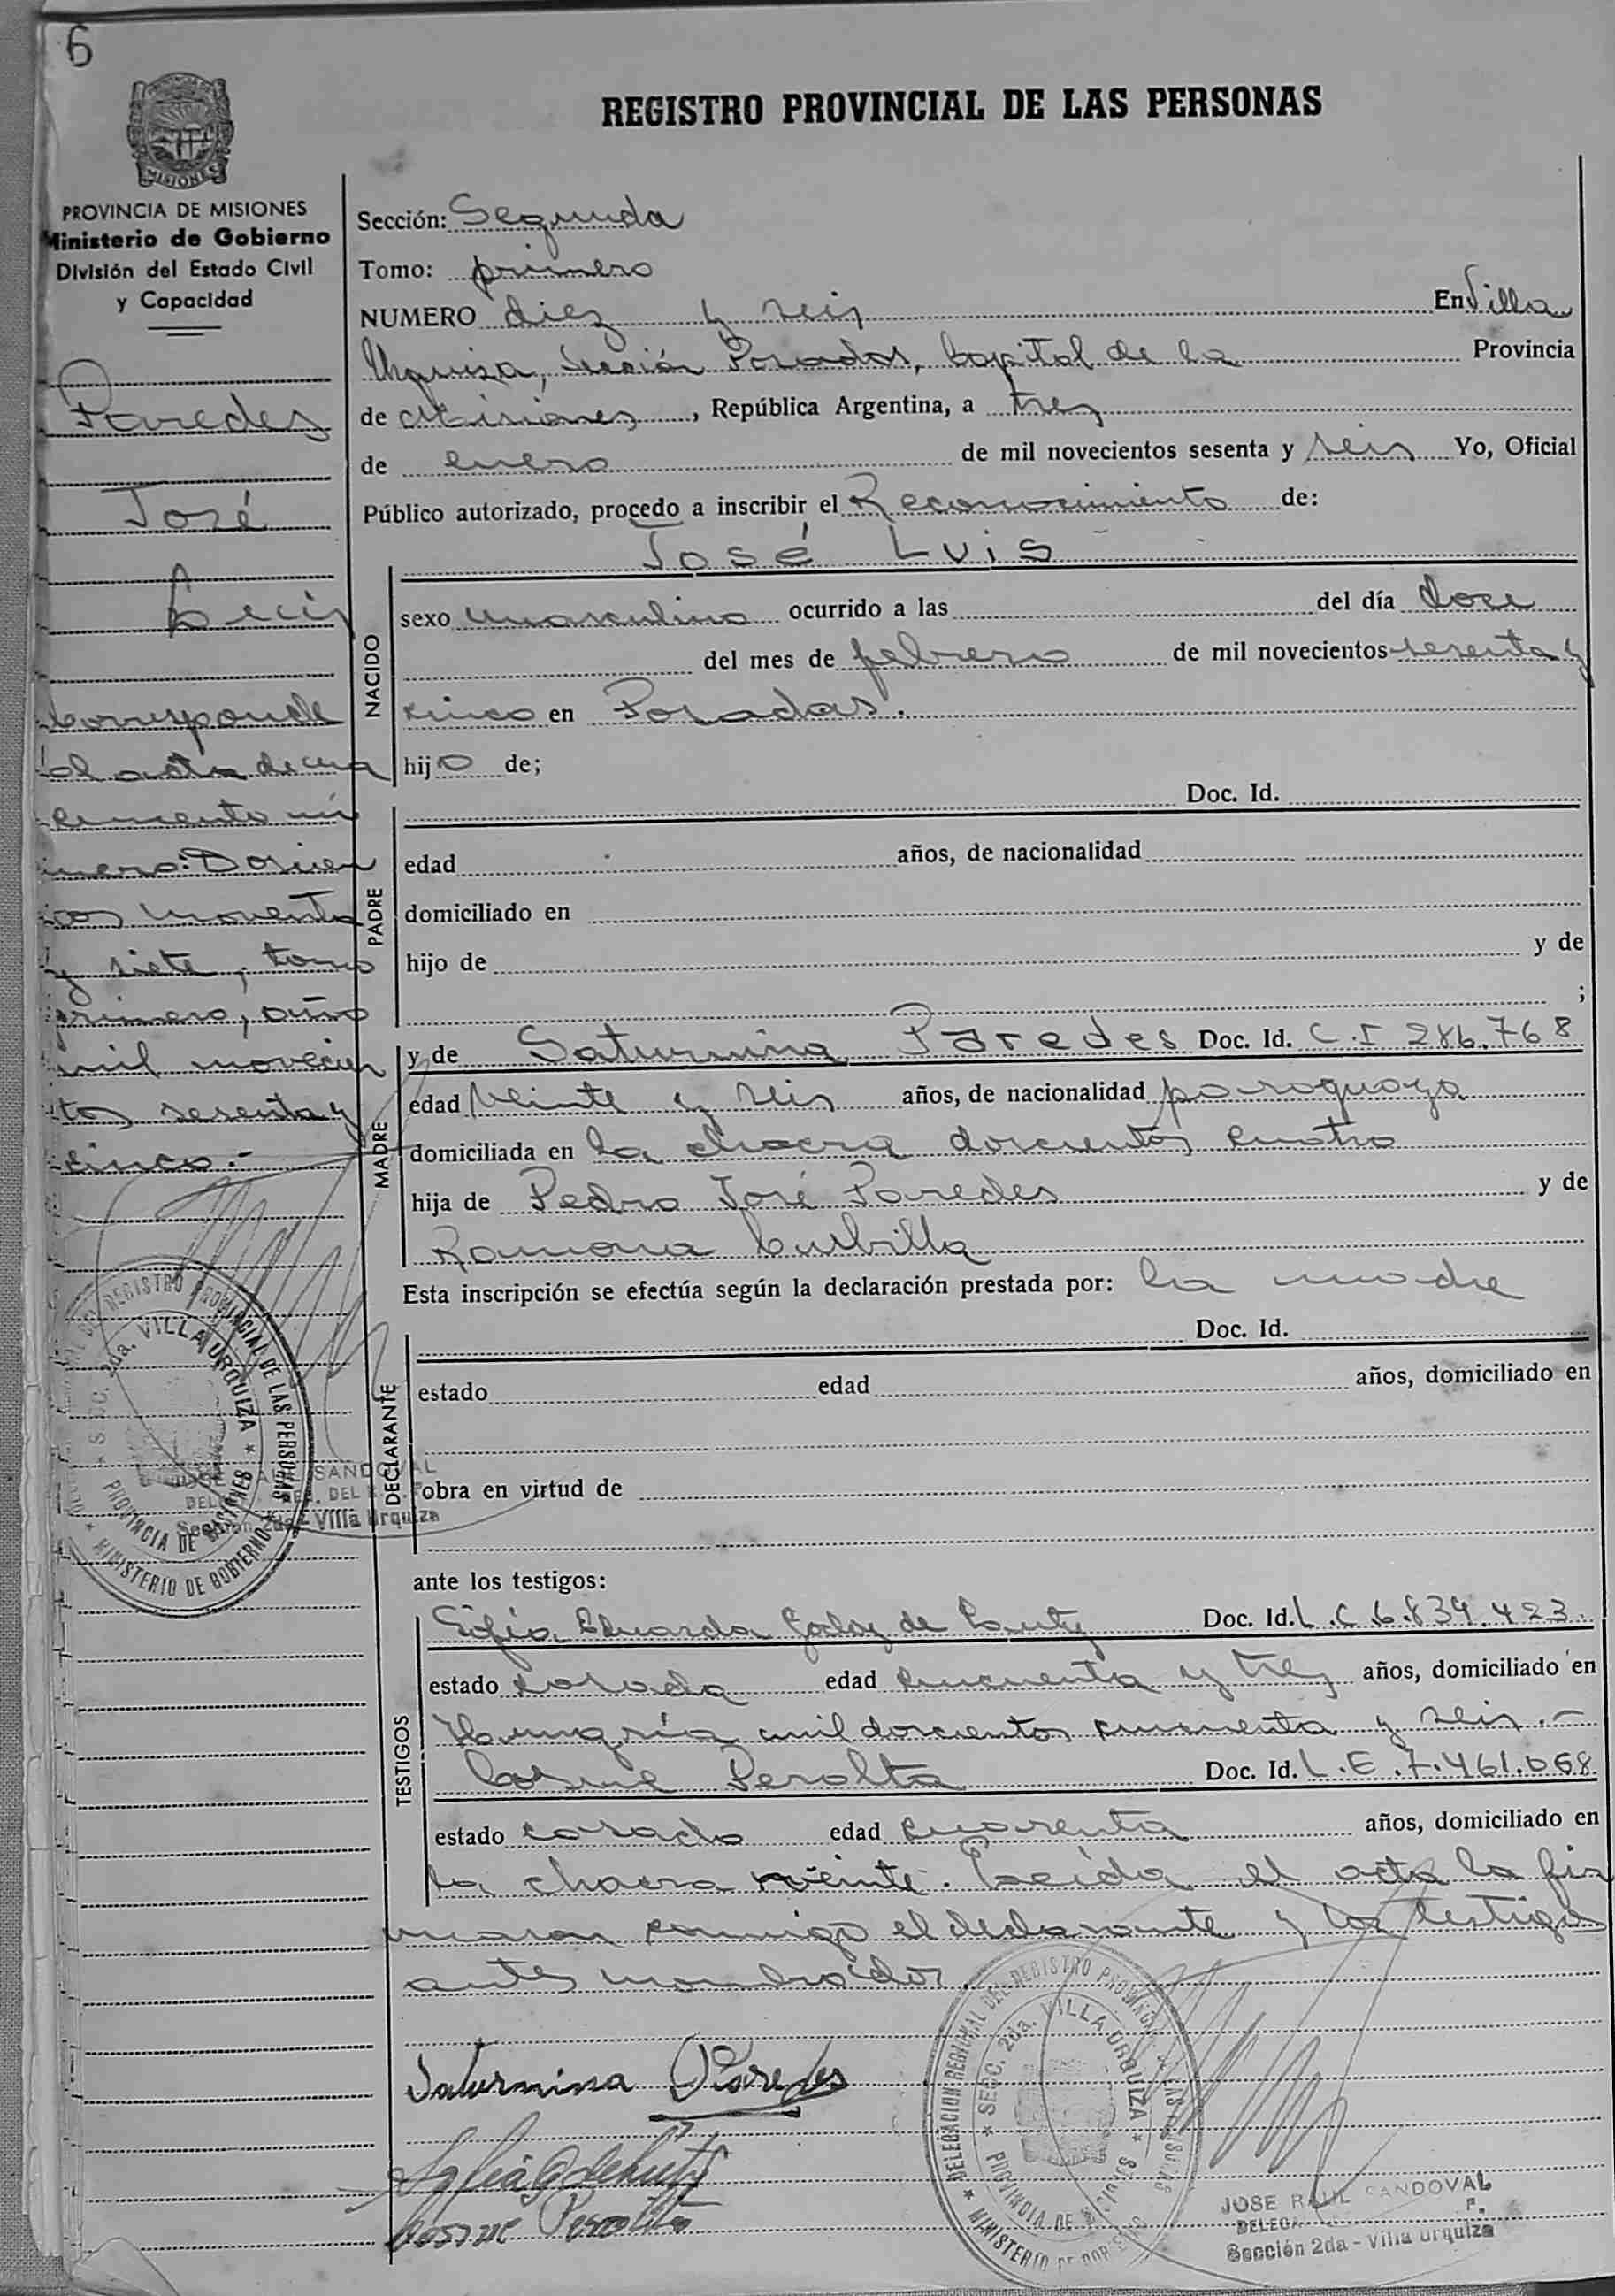 6
REGISTRO PROVINCIAL DE LAS PERSONAS
MISIONES
PROVINCIA DE MISIONES
Ministerio de Gobierno
División del Estado Civil
y Capacidad
Paredes
José
Luis
Corresponde
al acta de naci
miento nú
mero: Doscien
tos noventa
y siete, tomo
primero, año
mil novecien
tos sesenta y
cinco.-
Sección: Segunda
Tomo: primero
NUMERO diez y seis En Villa
Urquiza, Sección Posadas, Capital de la Provincia
de Misiones, República Argentina, a tres
de enero de mil novecientos sesenta y seis Yo, Oficial
Público autorizado, procedo a inscribir el Reconocimiento de:
José Luis
NACIDO
sexo masculino ocurrido a las del día doce
del mes de febrero de mil novecientos sesenta y
cinco en Posadas.
hijo de;
PADRE
Doc. Id.
edad años, de nacionalidad
domiciliado en
hijo de y de
;
MADRE
y de Saturnina Paredes Doc. Id. C.I 286.768
edad veinte y seis años, de nacionalidad paraguaya
domiciliada en la chacra doscientos cuatro
hija de Pedro José Paredes y de
Ramona
Esta inscripción se efectúa según la declaración prestada por: la madre
DECLARANTE
Doc. Id.
estado edad años, domiciliado en
obra en virtud de
ante los testigos:
TESTIGOS
Eduarda Godoy de Doc. Id. L.C 6.839.423.
estado casada edad cincuenta y tres años, domiciliado en
Hungría mil doscientos cincuenta y seis.-
Cosme Peralta Doc. Id. L.E.7.461.068
estado casado edad cuarenta años, domiciliado en
la chacra veinte. Leída el acta la fir
maron conmigo el declarante y los testigos
antes nombrados.
Saturnina Paredes
Cosme Peralta
REGISTRO PROVINCIAL DE LAS PERSONAS
SECC. 2da. VILLA URQUIZA
PROVINCIA DE MISIONES
MINISTERIO DE GOBIERNO
SANDOVAL
Sección 2da - Villa Urquiza
DELEGACION REGIONAL DEL REGISTRO
SECC. 2da. VILLA URQUIZA
PROVINCIA DE
MINISTERIO
JOSE RAUL SANDOVAL
Sección 2da - Villa Urquiza